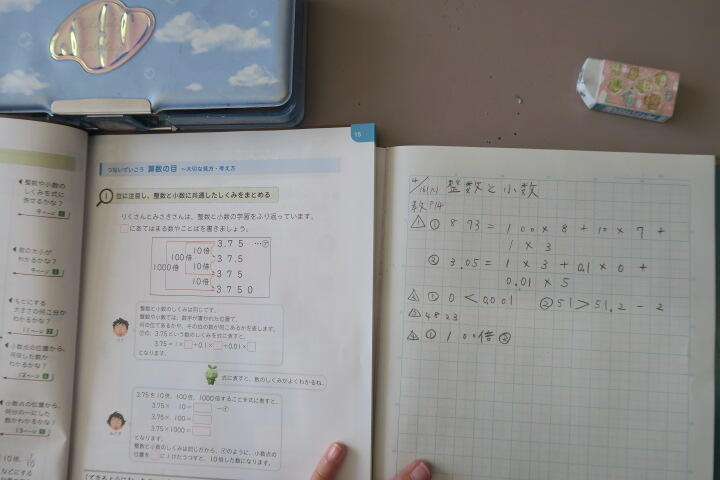 整数や小数の
しくみを式に
表せるかな？
数の大小が
わかるかな？
もとにする
大きさの何こ分か
わかるかな？
小数点の位置から、
何倍した数か
わかるかな？
小数点の位置から、
何分の一にした
数かわかるかな？
15
つないでいこう 算数の目 ～大切な見方・考え方
1 位に注目し、整数と小数に共通したしくみをまとめる
りくさんとみさきさんは、整数と小数の学習をふり返っています。
□にあてはまる数やことばを書きましょう。
3.75 …㋐
10倍
37.5
100倍
10倍
1000倍
375
10倍
3750
整数と小数のしくみは同じです。
整数や小数では、数字が書かれた位置で、
何の位であるかや、その位の数が何こあるかを表します。
㋐の、3.75という数のしくみを式に表すと、
3.75＝1×□＋0.1×□＋0.01×□
となります。
りく
式に表すと、数のしくみがよくわかるね。
3.75を10倍、100倍、1000倍することを式に表すと、
3.75× 10＝□
3.75× 100＝□
3.75×1000＝□
となります。
整数と小数のしくみは同じだから、㋑のように、小数点の
位置を□に1けたうつすと、10倍した数になります。
みさき
4/16(火) 整数と小数
教P14
△1 ① 873=100×8+10×7+
1×3
② 3.05=1×3+0.1×0+
0.01×5
△2 ① 0<0.001 ② 51>51.2-2
△3 4823
△4 ① 100倍 ②